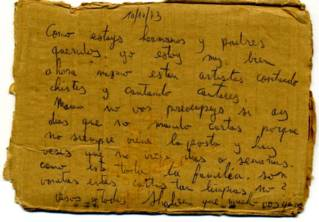 10/11/73
Como estays hermanos y padres
queridos, yo estoy muy bien
ahora mismo estan artistas contando
chistes y cantando cantares,
Mama no vos preocupeys si ay
dias que no mando cartas porque
no siempre viene la posta y hay
veses que no veis dias o semanas.
como esta toda la familia. son
bonitas estas cartas tan limpias, no?
besos a todos